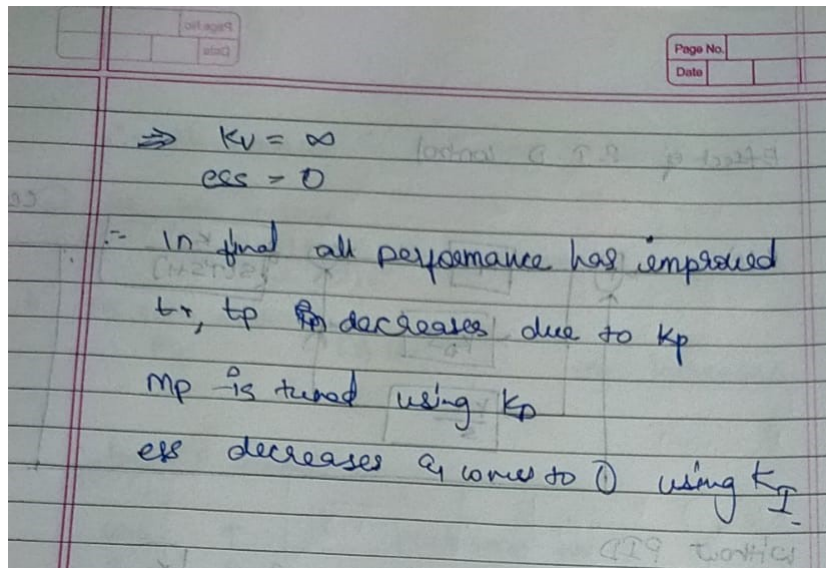 Page No.
Date
⇒ Kv = ∞
ess = 0
∴ In final all performance has improved
tr, tp decreases due to Kp
Mp is tuned using KD
ess decreases & comes to 0 using KI